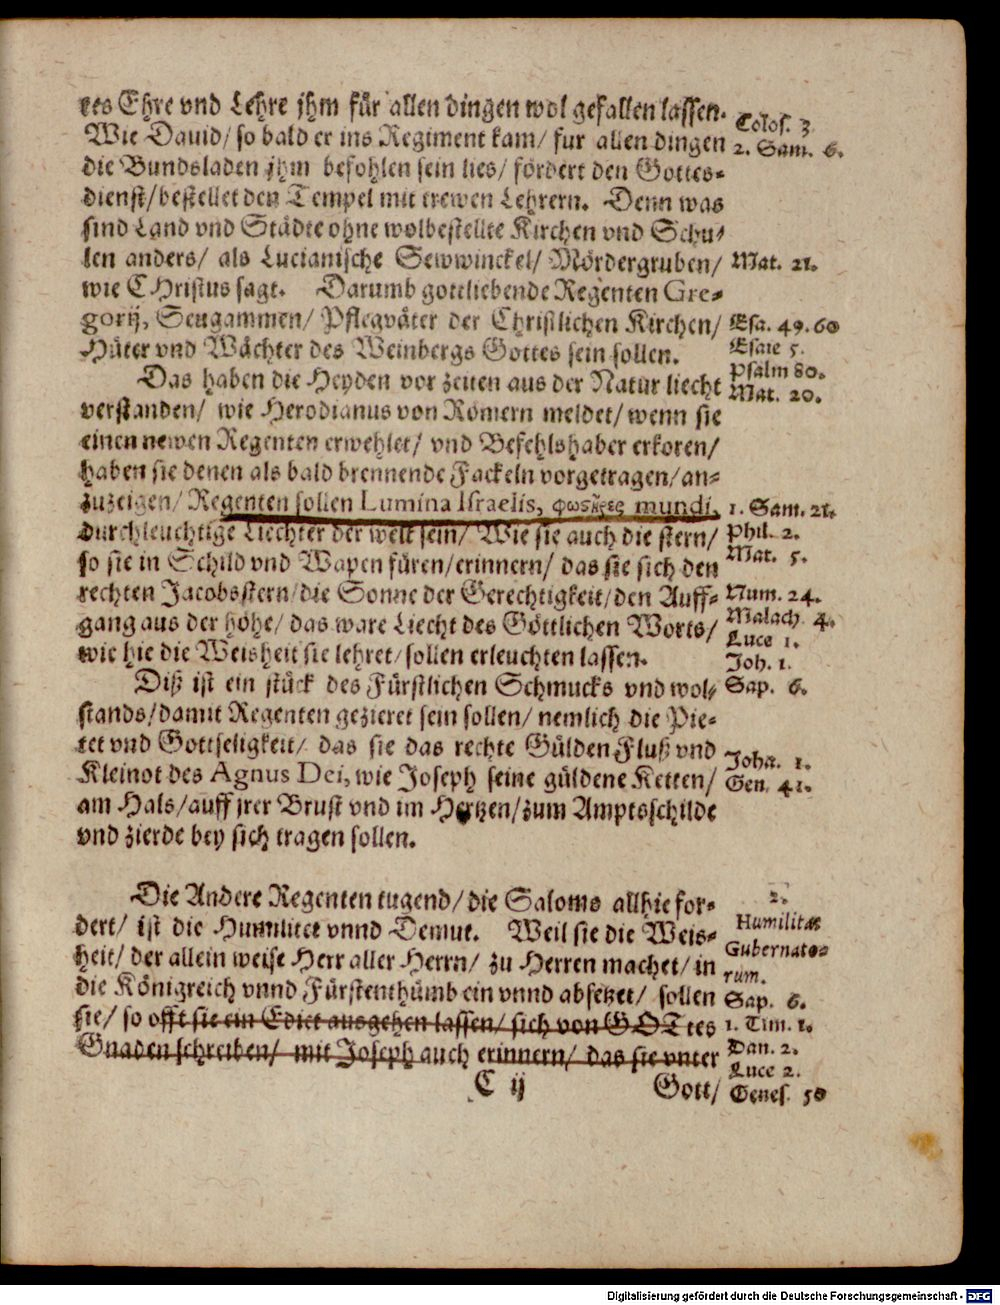 tes Ehre vnd Lehre jhm für allen dingen wol gefallen lassen.
Wie Dauid/ so bald er ins Regiment kam/ fur allen dingen
die Bundsladen jhm befohlen sein lies/ fördert den Gottes-
dienst/ bestellet den Tempel mit trewen Lehrern. Denn was
sind Land vnd Städte ohne wolbestellte Kirchen vnd Schu-
len anders/ als Lucianische Sewwinckel/ Mördergruben/
wie CHristus sagt. Darumb gottliebende Regenten Gre-
gorij, Seugammen/ Pflegväter der Christlichen Kirchen/
Hüter vnd Wächter des Weinbergs Gottes sein sollen.
Colos. 3
2. Sam. 6.
Mat. 21.
Esa. 49. 60
Esaie 5.
Psalm 80.
Mat. 20.
Das haben die Heyden vor zeiten aus der Natur liecht
verstanden/ wie Herodianus von Römern meldet/ wenn sie
einen newen Regenten erwehlet/ vnd Befehlshaber erkoren/
haben sie denen als bald brennende Fackeln vorgetragen/ an-
zuzeigen/ Regenten sollen Lumina Israelis, φωστῆρες mundi,
durchleuchtige Liechter der welt sein/ Wie sie auch die stern/
so sie in Schild vnd Wapen füren/ erinnern/ das sie sich den
rechten Jacobsstern/ die Sonne der Gerechtigkeit/ den Auff-
gang aus der höhe/ das ware Liecht des Göttlichen Worts/
wie hie die Weisheit sie lehret/ sollen erleuchten lassen.
1. Sam. 21.
Phil. 2.
Mat. 5.
Num. 24.
Malach. 4.
Luce 1.
Joh. 1.
Sap. 6.
Diß ist ein stück des Fürstlichen Schmucks vnd wol-
stands/ damit Regenten gezieret sein sollen/ nemlich die Pie-
tet vnd Gottseligkeit/ das sie das rechte Gülden Fluß vnd
Kleinot des Agnus Dei, wie Joseph seine güldene Ketten/
am Hals/ auff jrer Brust vnd im Hertzen/ zum Amptsschilde
vnd zierde bey sich tragen sollen.
Joha. 1.
Gen. 41.
Die Andere Regenten tugend/ die Saloms allhie for-
dert/ ist die Humilitet vnnd Demut. Weil sie die Weis-
heit/ der allein weise Herr aller Herrn/ zu Herren machet/ in
die Königreich vnnd Fürstenthümb ein vnnd absetzet/ sollen
sie/ so offt sie ein Edict ausgehen lassen/ sich von GOTtes
Gnaden schreiben/ mit Joseph auch erinnern/ das sie vnter
2.
Humilitas
Gubernato-
rum.
Sap. 6.
1. Tim. 1.
Dan. 2.
Luce 2.
Genes. 50
C ij Gott/
Digitalisierung gefördert durch die Deutsche Forschungsgemeinschaft - DFG